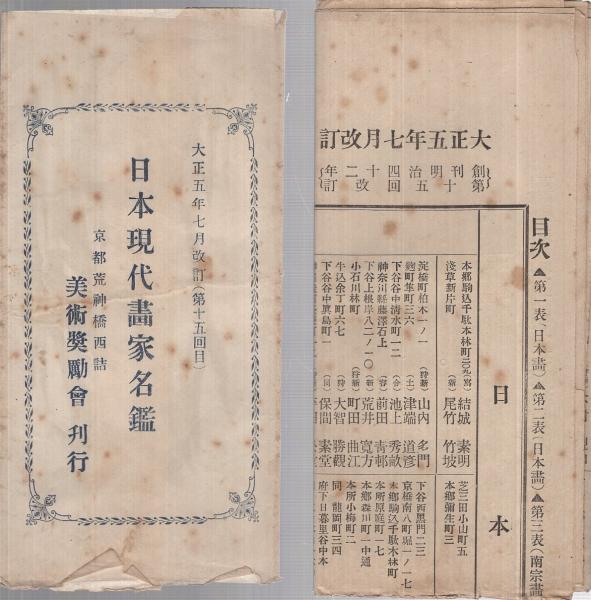 大正五年七月改訂(第十五回目)
日本現代畫家名鑑
京都荒神橋西詰
美術獎勵會 刊行
大正五年七月改訂
創刊明治四十二年
第十五回改訂
目次 ▲第一表(日本畫)▲第二表(日本畫)▲第三表(南宗畫
日本
本郷駒込千駄木林町二〇九(寫) 結城 素明
淺草新片町 (新) 尾竹 竹坡
淀橋町柏木一ノ一 (狩新) 山内 多門
麹町隼町三六 (土) 津端 道彦
下谷谷中清水町一二 (合) 池上 秀畝
神奈川縣藤澤石上 (容) 前田 青邨
下谷上根岸八二ノ一〇 (新) 荒井 寛方
小石川林町 (狩新) 町田 曲江
牛込余丁町六七 (狩) 大智 勝觀
下谷谷中眞島町一 (同) 保間 素堂
芝三田小山町五
本郷彌生町三
下谷西黑門二三
京橋南八町堀一ノ一七
本郷駒込千駄木林町
本所原庭町一七
本郷森川町一中通
本所小梅町二
同 龍岡町三四
府下日暮里谷中本